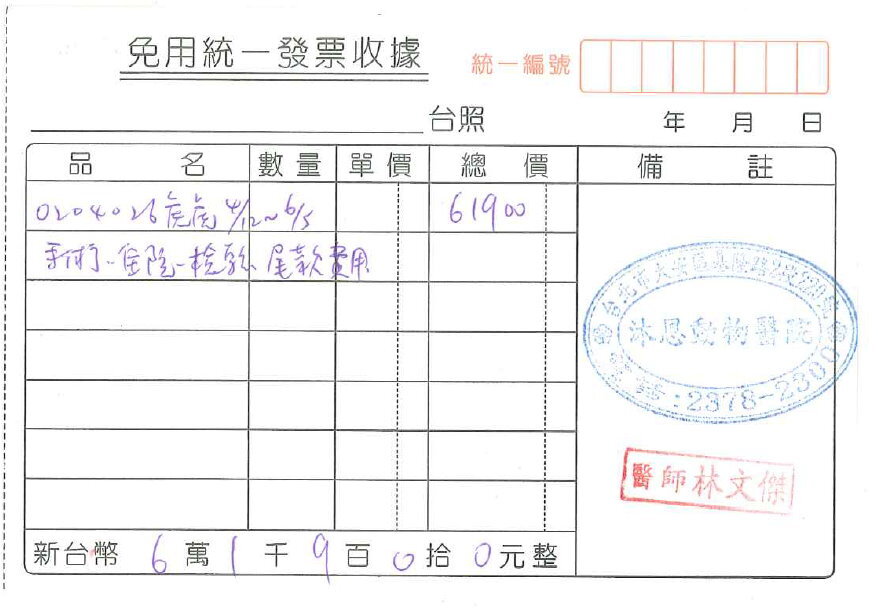 免用統一發票收據
統一編號
台照 年 月 日
品名 數量 單價 總價 備註
0204026虎虎 4/12~6/5 61900
手術-住院-檢驗 尾款費用
沐恩動物醫院
電話:2378-2300
醫師林文傑
新台幣 6 萬 1 千 9 百 0 拾 0 元整